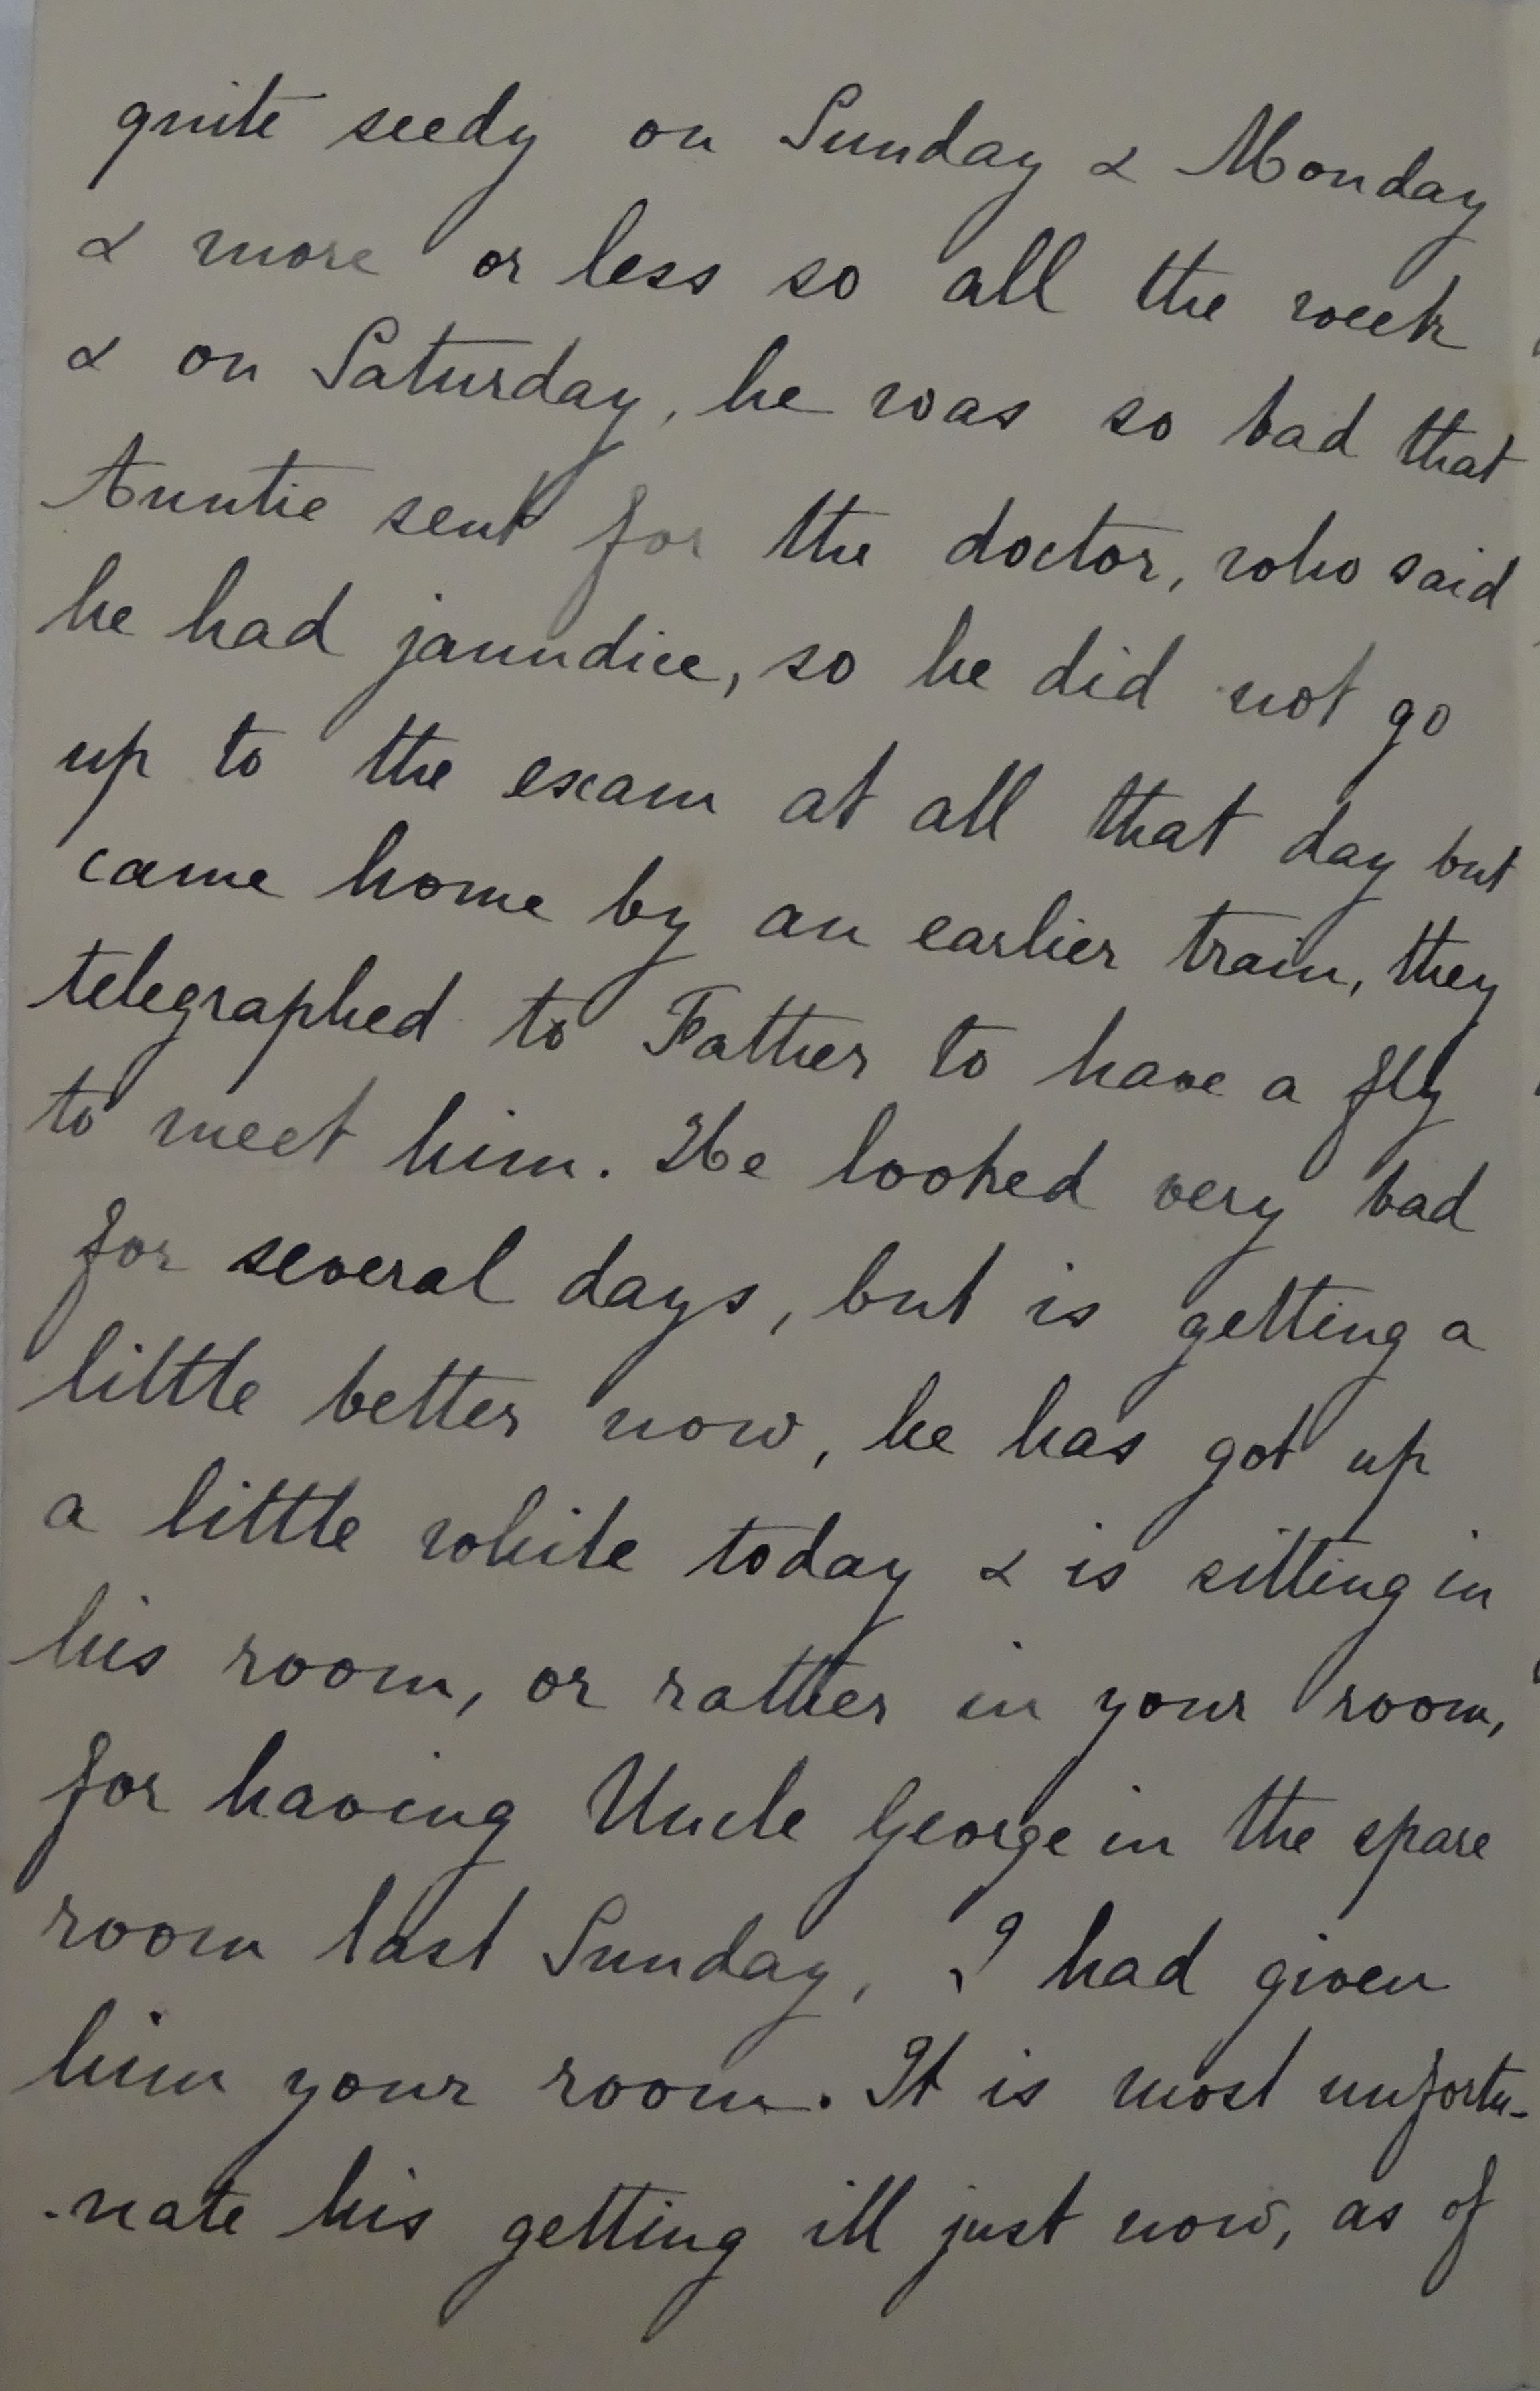 quite seedy on Sunday & Monday
& more or less so all the week
& on Saturday, he was so bad that
Auntie sent for the doctor, who said
he had jaundice, so he did not go
up to the exam at all that day but
came home by an earlier train, they
telegraphed to Father to have a fly
to meet him. He looked very bad
for several days, but is getting a
little better now, he has got up
a little while today & is sitting in
his room, or rather in your room,
for having Uncle George in the spare
room last Sunday, I had given
him your room. It is most unfortu-
-nate his getting ill just now, as of